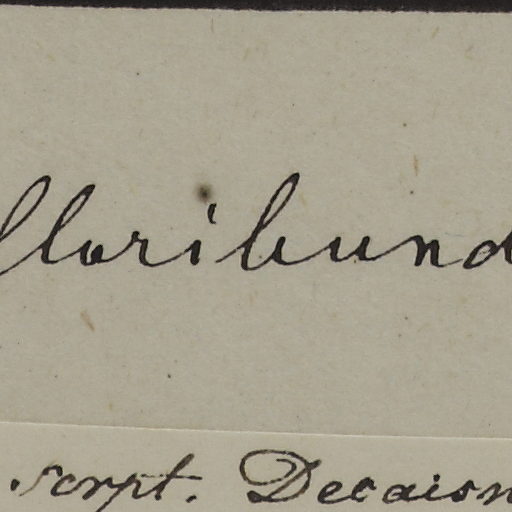 floribund
script. Decaisn